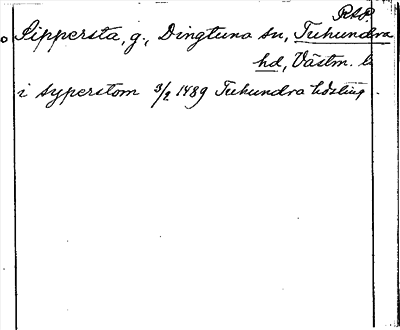 RAP.
Sippersta, g., Dingtuna sn, Tuhundra
hd, Västm. l.
i syperstom 3/2 1489 Tuhundra hdsting.